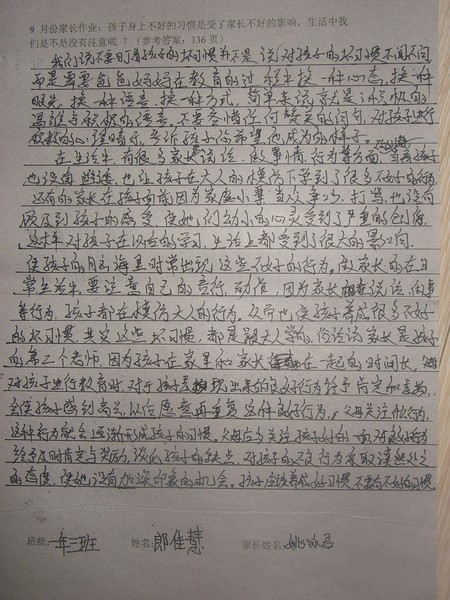 9月份家长作业：孩子身上不好的习惯是受了家长不好的影响，生活中我
们是不是没有注意呢？（参考答案：136页）
我们说不要盯着孩子的坏习惯并不是说对孩子的坏习惯不闻不问
而是需要爸爸妈妈在教育的过程中换一种心态，换一种
眼光，换一种语言，换一种方式，简单来说，就是以积极的
温暖与积极的语言，不要带任何的问句，对孩子进行
积极的心理暗示，告诉孩子你希望他成为的样子。
在生活中，有很多家长说话、做事情、行为等方面，当着孩子
也没有避讳，也让孩子在大人的模仿下学到了很多不好的行为，
还有的家长在孩子面前因为家庭小事当众争少、打骂，也没有
顾及到孩子的感受，使她们幼小的心灵受到了严重的创伤，
这样对孩子在以后的学习、生活上都受到了很大的影响。
使孩子的脑海里时常出现这些不好的行为。做家长的在日
常生活中，要注意自己的言行、动作，因为家长说话、做事
等行为，孩子都在模仿大人的行为。从而也使孩子养成很多不好
的坏习惯，其实这些坏习惯，都是跟大人学的，俗话说家长是孩子
的第二个老师，因为孩子在家里和家长在一起的时间长，
对孩子进行教育时，对于孩子表现出来的良好行为给予肯定和表扬，
会使孩子感到高兴，以后愿意再重复这种良好行为，父母关注他行为，
这种行为就会逐渐形成孩子的习惯。父母应多关注孩子好的一面，对良好行为
给予及时肯定与奖励，淡化孩子的缺点，对孩子的不良行为采取漠然处之
的态度，使她没有加深印象的机会。孩子应该养成好习惯，不要有不好的习惯
班级：一年三班 姓名：郎佳慧 家长姓名：姚咏